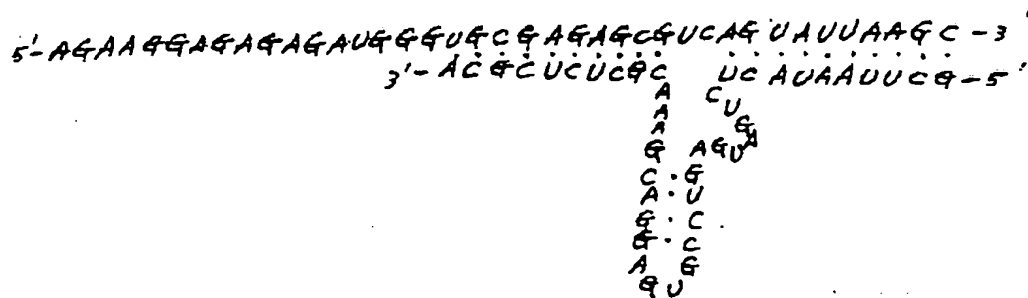 5'-AGAAGGAGAGAGAUGGGUGCGAGAGCGUCAGUAUUAAGC-3'
3'-ACGCUCUCGC UCAUAAUUCG-5'
A C
A U
A G
A
G AGU
C·G
A·U
G·C
G·C
A G
GU